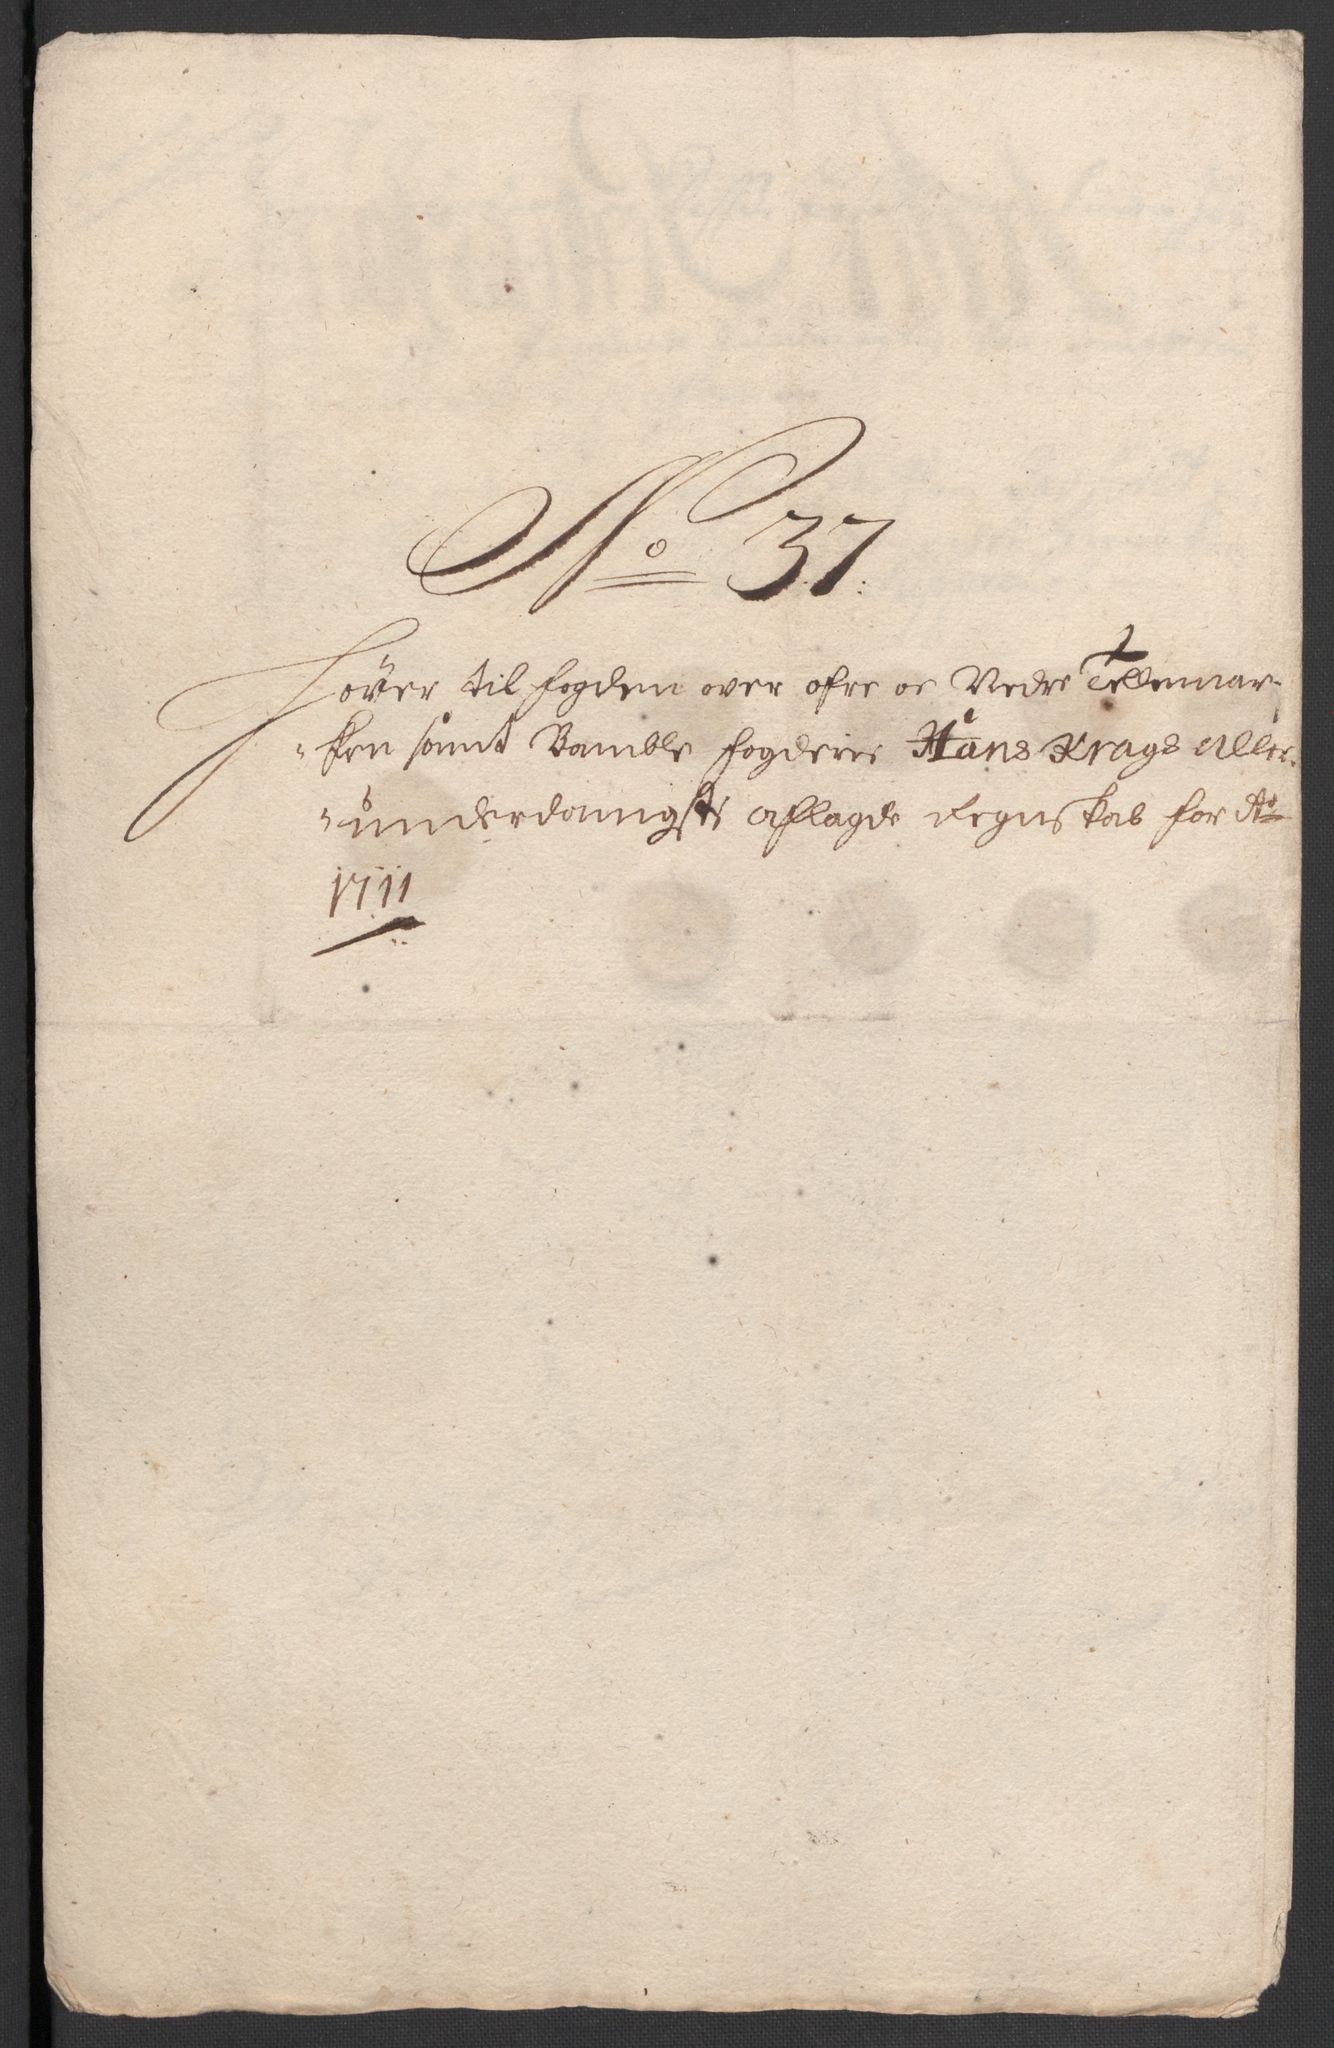 No 37.
Hörer til fogden over öfre oc Nedre Tellemar-
-ken samt Bamble fogderie Hans Krags Aller-
-underdanigste aflagde Regnskab for Ao
1711